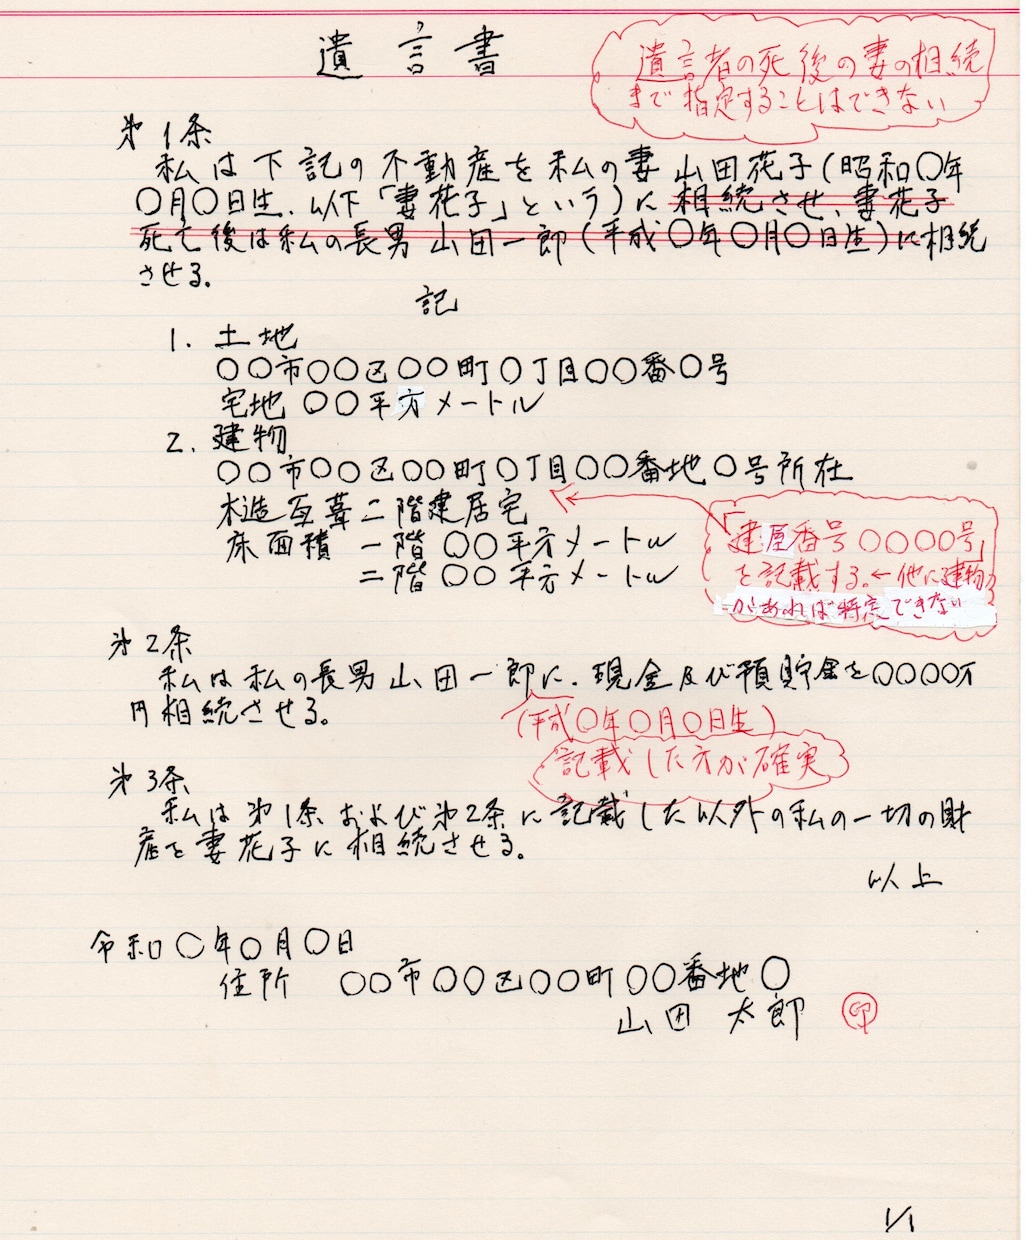 遺言書
遺言者の死後の妻の相続
まで指定することはできない
第1条
私は下記の不動産を私の妻山田花子(昭和〇年
〇月〇日生、以下「妻花子」という)に相続させ、妻花子
死亡後は私の長男山田一郎(平成〇年〇月〇日生)に相続
させる。
記
1. 土地
〇〇市〇〇区〇〇町〇丁目〇〇番〇号
宅地 〇〇平方メートル
2. 建物
〇〇市〇〇区〇〇町〇丁目〇〇番地〇号所在
木造瓦葺二階建居宅
床面積 一階 〇〇平方メートル
二階 〇〇平方メートル
「建屋番号〇〇〇〇号」
を記載する。←他に建物
があれば特定できない
第2条
私は私の長男山田一郎に、現金及び預貯金を〇〇〇〇万
円相続させる。
(平成〇年〇月〇日生)
記載した方が確実
第3条
私は第1条および第2条に記載した以外の私の一切の財
産を妻花子に相続させる。
以上
令和〇年〇月〇日
住所 〇〇市〇〇区〇〇町〇〇番地〇
山田 太郎 印
1/1